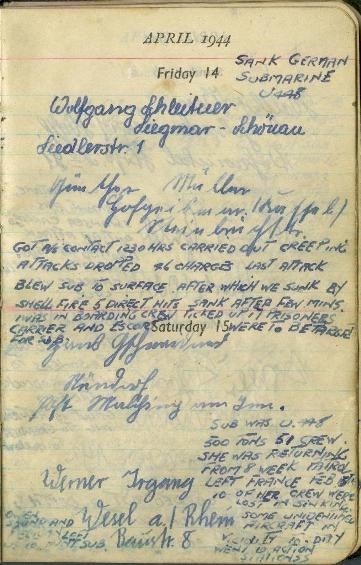 APRIL 1944
Friday 14
SANK GERMAN
SUBMARINE
U448
Wolfgang Schleitner
Siegmar - Schönau
Siedlerstr. 1
Günther Müller
Hofgeismar (Kassel)
Steinbruchstr.
GOT A/S CONTACT 1230 HRS CARRIED OUT CREEPING
ATTACKS DROPPED 46 CHARGES LAST ATTACK
BLEW SUB TO SURFACE AFTER WHICH WE SUNK BY
SHELL FIRE 5 DIRECT HITS SANK AFTER FEW MINS.
I WAS IN BOARDING CREW PICKED UP 17 PRISONERS
CARRIER AND ESCORT WERE TO BE TARGET
FOR SUB.
Saturday 15
Hans
Post Malching am Inn.
SUB WAS U.448
500 TONS 51 CREW.
SHE WAS RETURNING
FROM 8 WEEK PATROL
LEFT FRANCE FEB
10 OF HER CREW WERE
LOST IN SINKING
Werner Irgang
Wesel a./Rhein
Baustr. 8
SOME UNIDENTIFIED
AIRCRAFT IN
VICINITY TO-DAY
WENT TO ACTION
STATIONS
SUB.